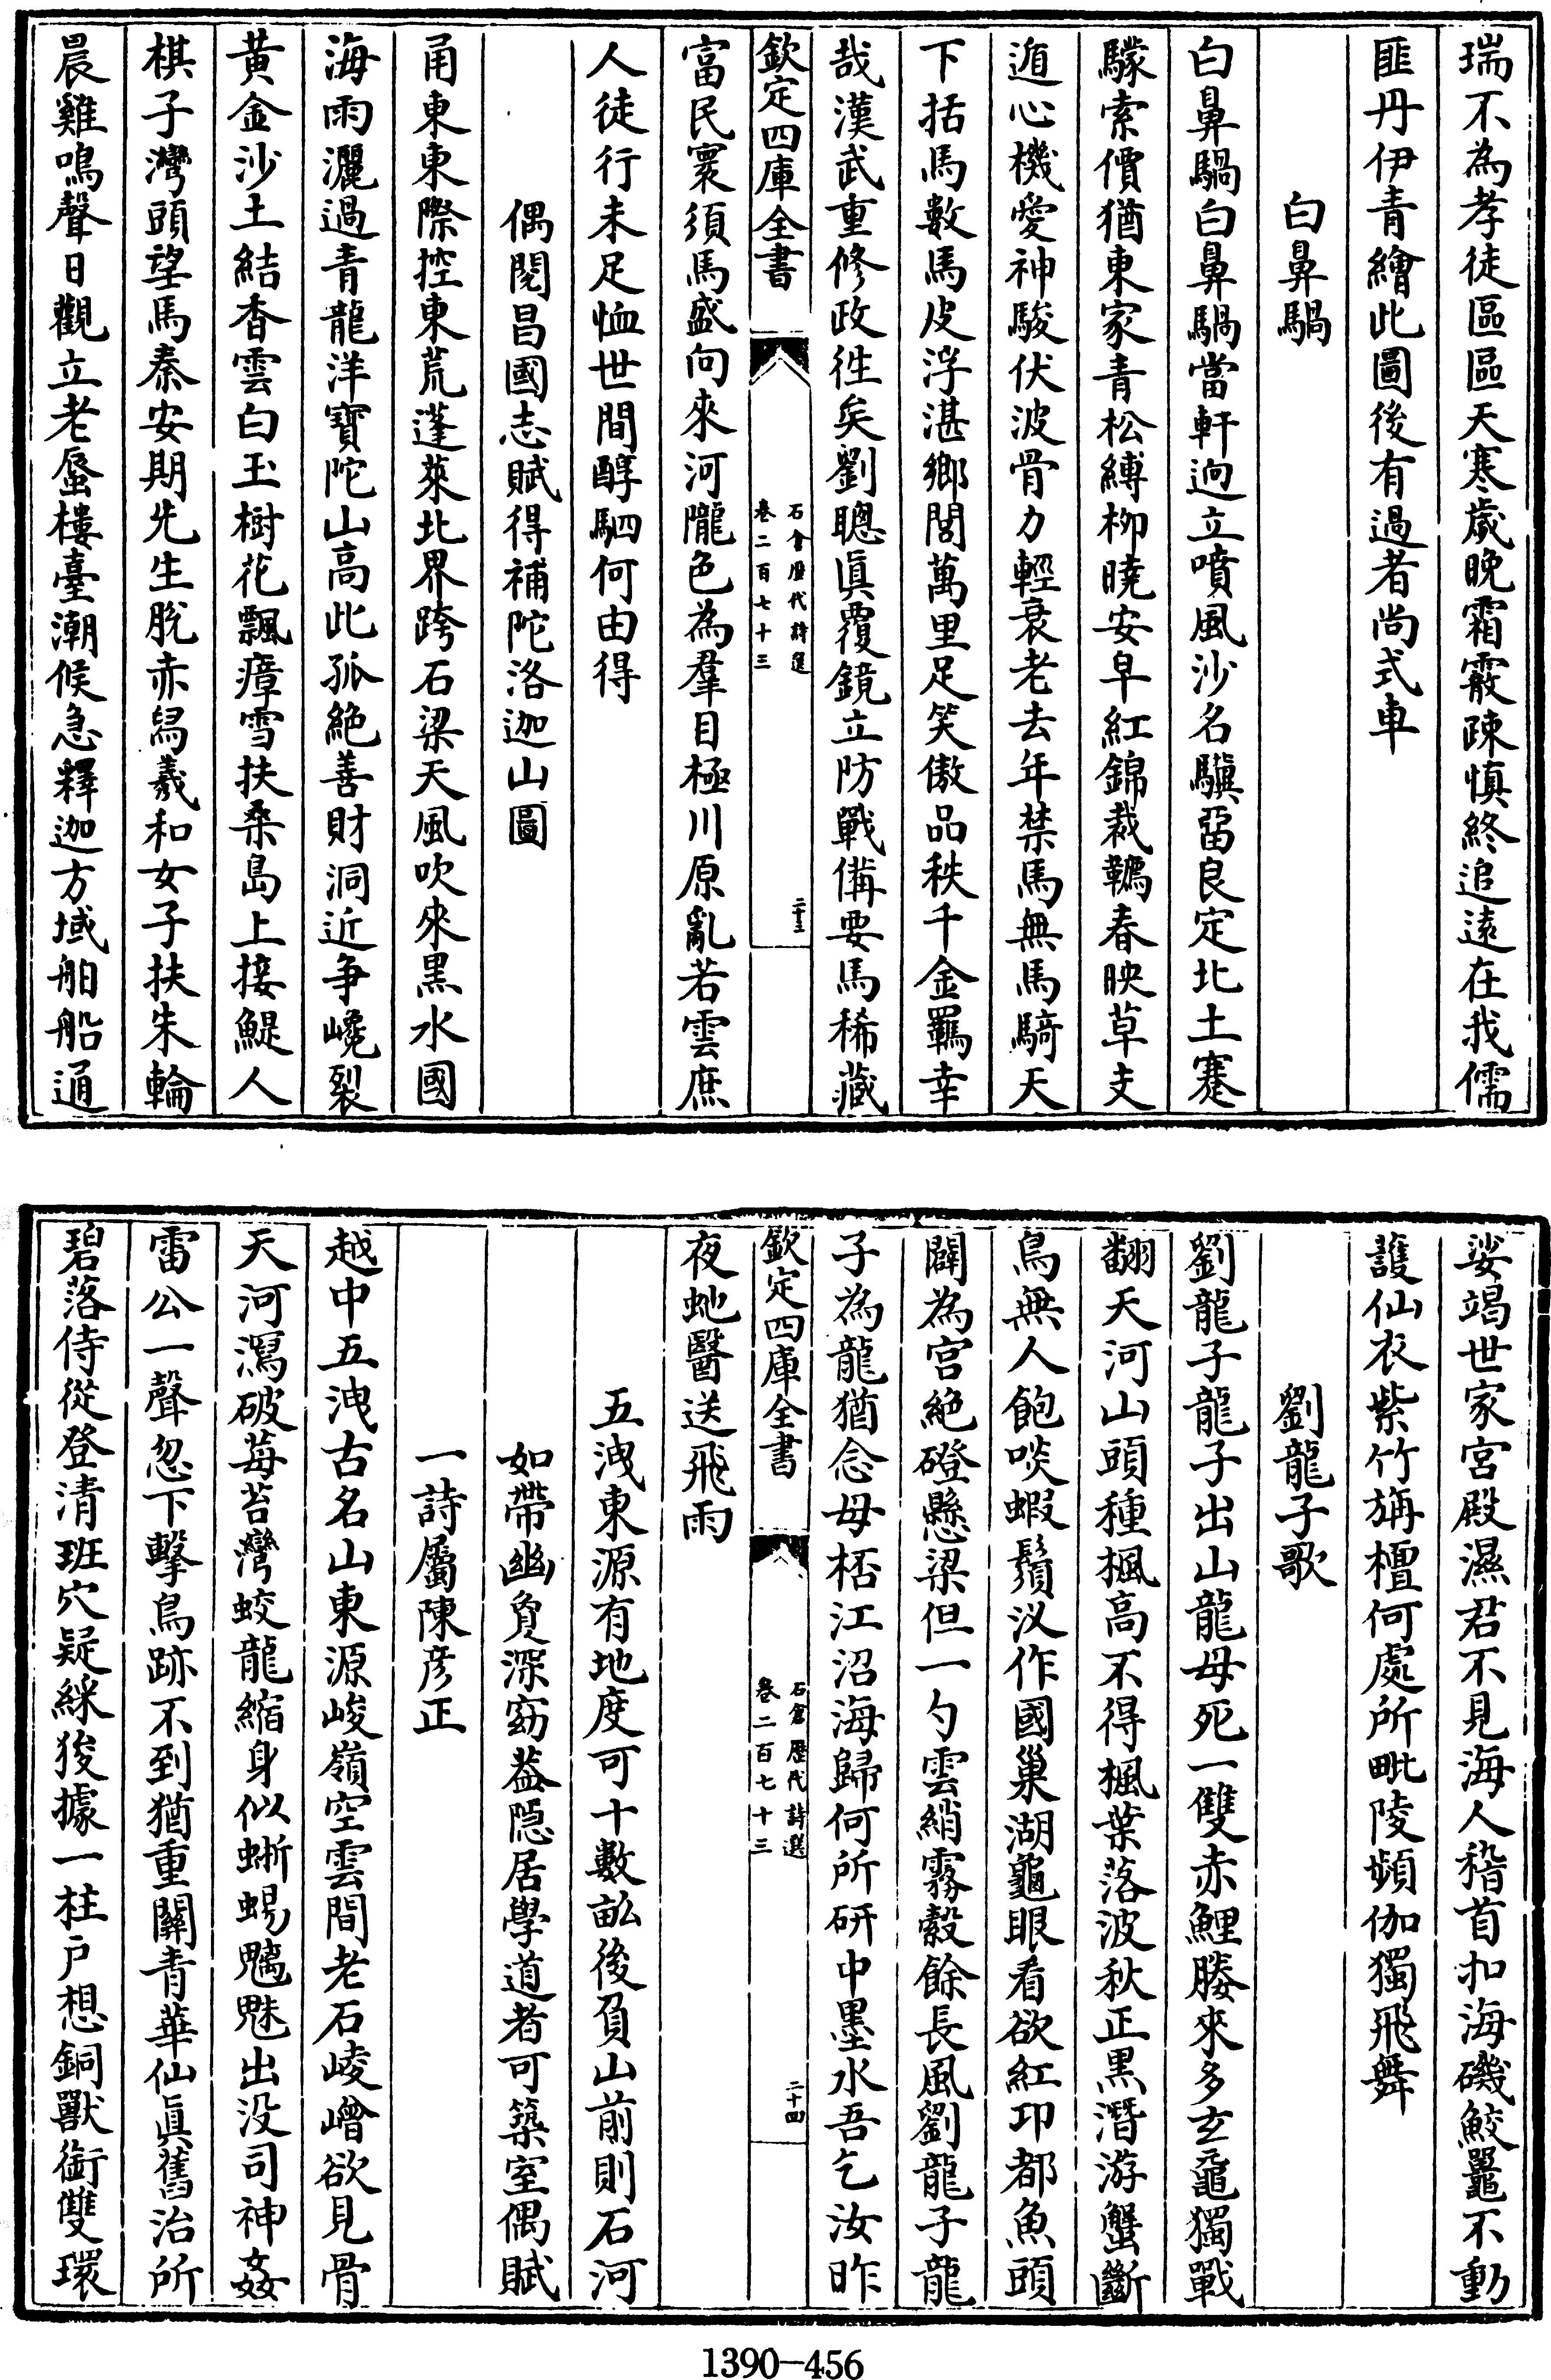 瑞不為孝徒區區天寒歲晚霜霰疎慎終追逺在我儒
匪丹伊青繪此圖後有過者尚式車
白鼻騧
白鼻騧白鼻騧當軒逈立噴風沙名驥畱良定北土蹇
驝索價猶東家青松縛柳曉安早紅錦裁韉春映草支
遁心機愛神駿伏波骨力輕衰老去年禁馬無馬騎天
下括馬數馬皮浮湛鄉閭萬里足笑傲品秩千金羈幸
哉漢武重修政徃矣劉聰真覆鏡立防戰備要馬稀藏
欽定四庫全書
石倉歴代詩選
卷二百七十三
二十三
富民寰須馬盛向來河隴色為羣目極川原亂若雲庶
人徒行未足恤世間醇駟何由得
偶閱昌國志賦得補陀洛迦山圖
甬東東際控東荒蓬萊北界跨石梁天風吹來黒水國
海雨灑過青龍洋寶陀山高此孤絶善財洞近争巉裂
黄金沙土結香雲白玉樹花飄瘴雪扶桑島上接鯷人
棋子灣頭望馬秦安期先生脫赤舄羲和女子扶朱輪
晨雞鳴聲日觀立老蜃樓臺潮候急釋迦方域舶船通
娑竭世家宮殿濕君不見海人稽首扣海磯鮫鼉不動
護仙衣紫竹旃檀何處所毗陵頻伽獨飛舞
劉龍子歌
劉龍子龍子出山龍母死一雙赤鯉媵來多玄黿獨戰
翻天河山頭種楓高不得楓葉落波秋正黒潛游蟹斷
鳥無人飽啖蝦鬚汊作國巢湖龜眼看欲紅卭都魚頭
闢為宮絶磴懸梁但一勺雲綃霧縠餘長風劉龍子龍
子為龍猶念母桮江沼海歸何所研中墨水吾乞汝昨
欽定四庫全書
石倉歴代詩選
卷二百七十三
二十四
夜虵醫送飛雨
五洩東源有地度可十數畝後負山前則石河
如帶幽負深窈葢隠居學道者可築室偶賦
一詩屬陳彦正
越中五洩古名山東源峻嶺空雲間老石崚嶒欲見骨
天河瀉破莓苔灣蛟龍縮身似蜥蜴魑魅出没司神姦
雷公一聲忽下擊鳥跡不到猶重關青華仙真舊治所
碧落侍從登清班穴疑綵狻據一柱戸想銅獸銜雙環
1390-456